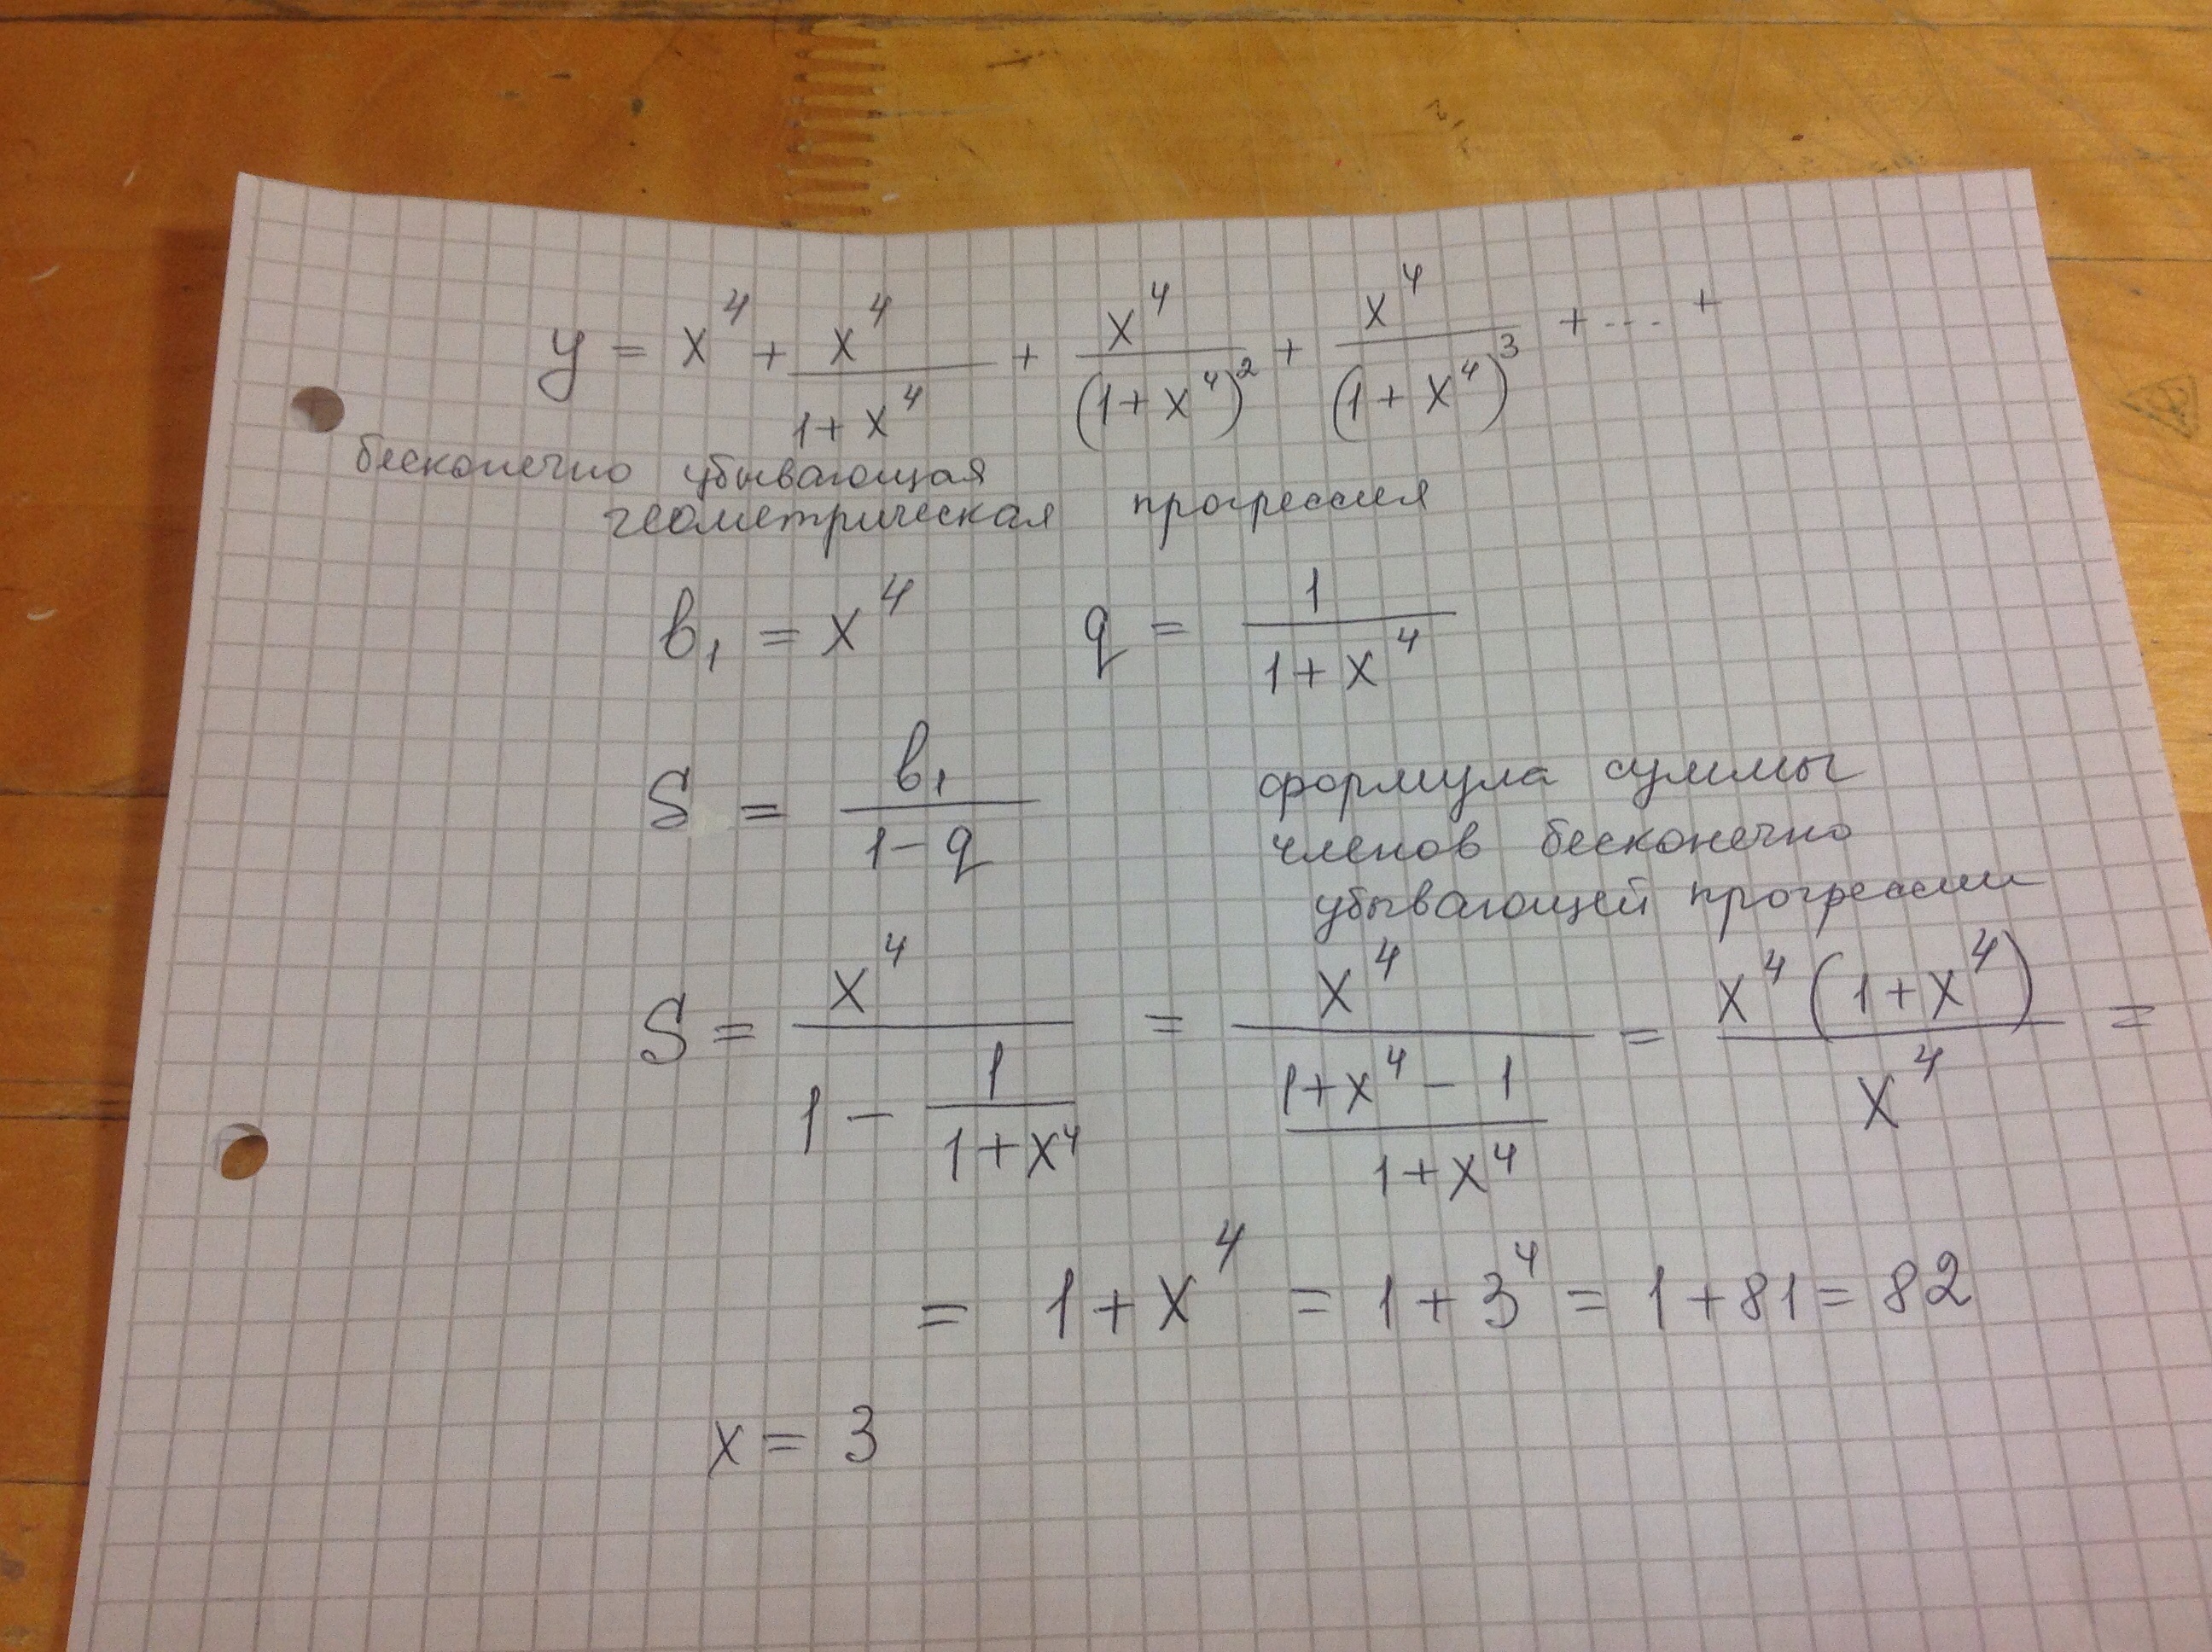 y = x⁴ + x⁴/(1+x⁴) + x⁴/(1+x⁴)² + x⁴/(1+x⁴)³ + ... +
бесконечно убывающая
геометрическая прогрессия
b₁ = x⁴ q = 1/(1+x⁴)
S = b₁/(1-q) формула суммы
членов бесконечно
убывающей прогрессии
S = x⁴/(1 - 1/(1+x⁴)) = x⁴/((1+x⁴-1)/(1+x⁴)) = x⁴(1+x⁴)/x⁴ =
= 1+x⁴ = 1+3⁴ = 1+81 = 82
x = 3